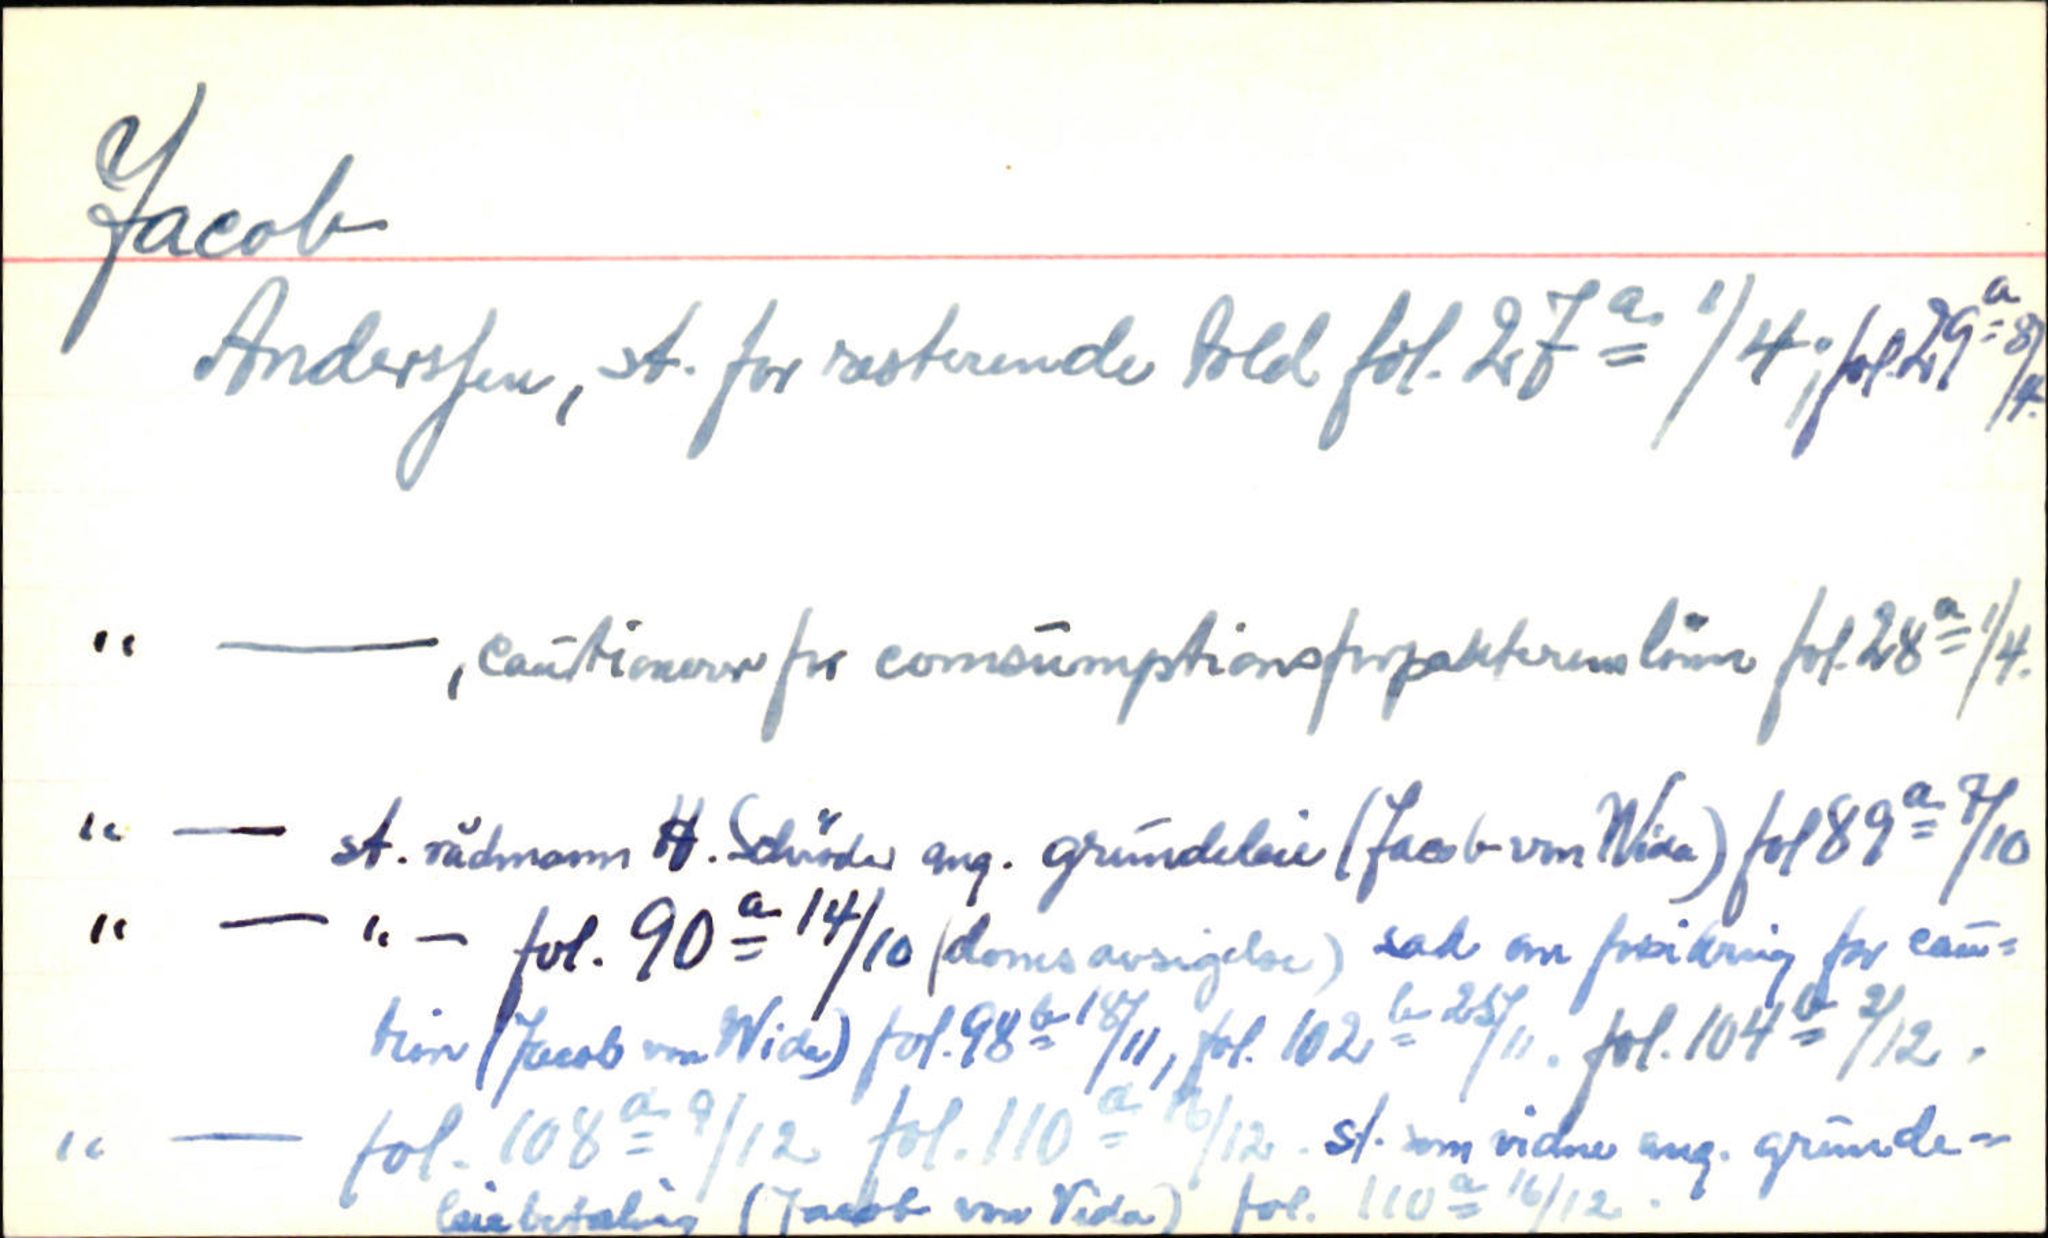 Jacob
Anderssen, st. for resterende told fol. 27a 1/4; fol. 29a 8/4.
" —, cautionerer for comsumptionsforpakterens lönn fol. 28a 1/4.
" — st. rådmann H. Schröder ang. grundeleie (Jacob von Wida) fol 89a 7/10
" — " — fol. 90a 14/10 (domsavsigelse) sak om forsikring for cau=
tion (Jacob von Wida) fol. 98b 18/11, fol. 102b 25/11. fol. 104b 2/12.
" — fol. 108a 9/12 fol. 110a 16/12. st. som vidne ang. grunde=
leiebetaling (Jacob von Vida) fol. 110a 16/12.